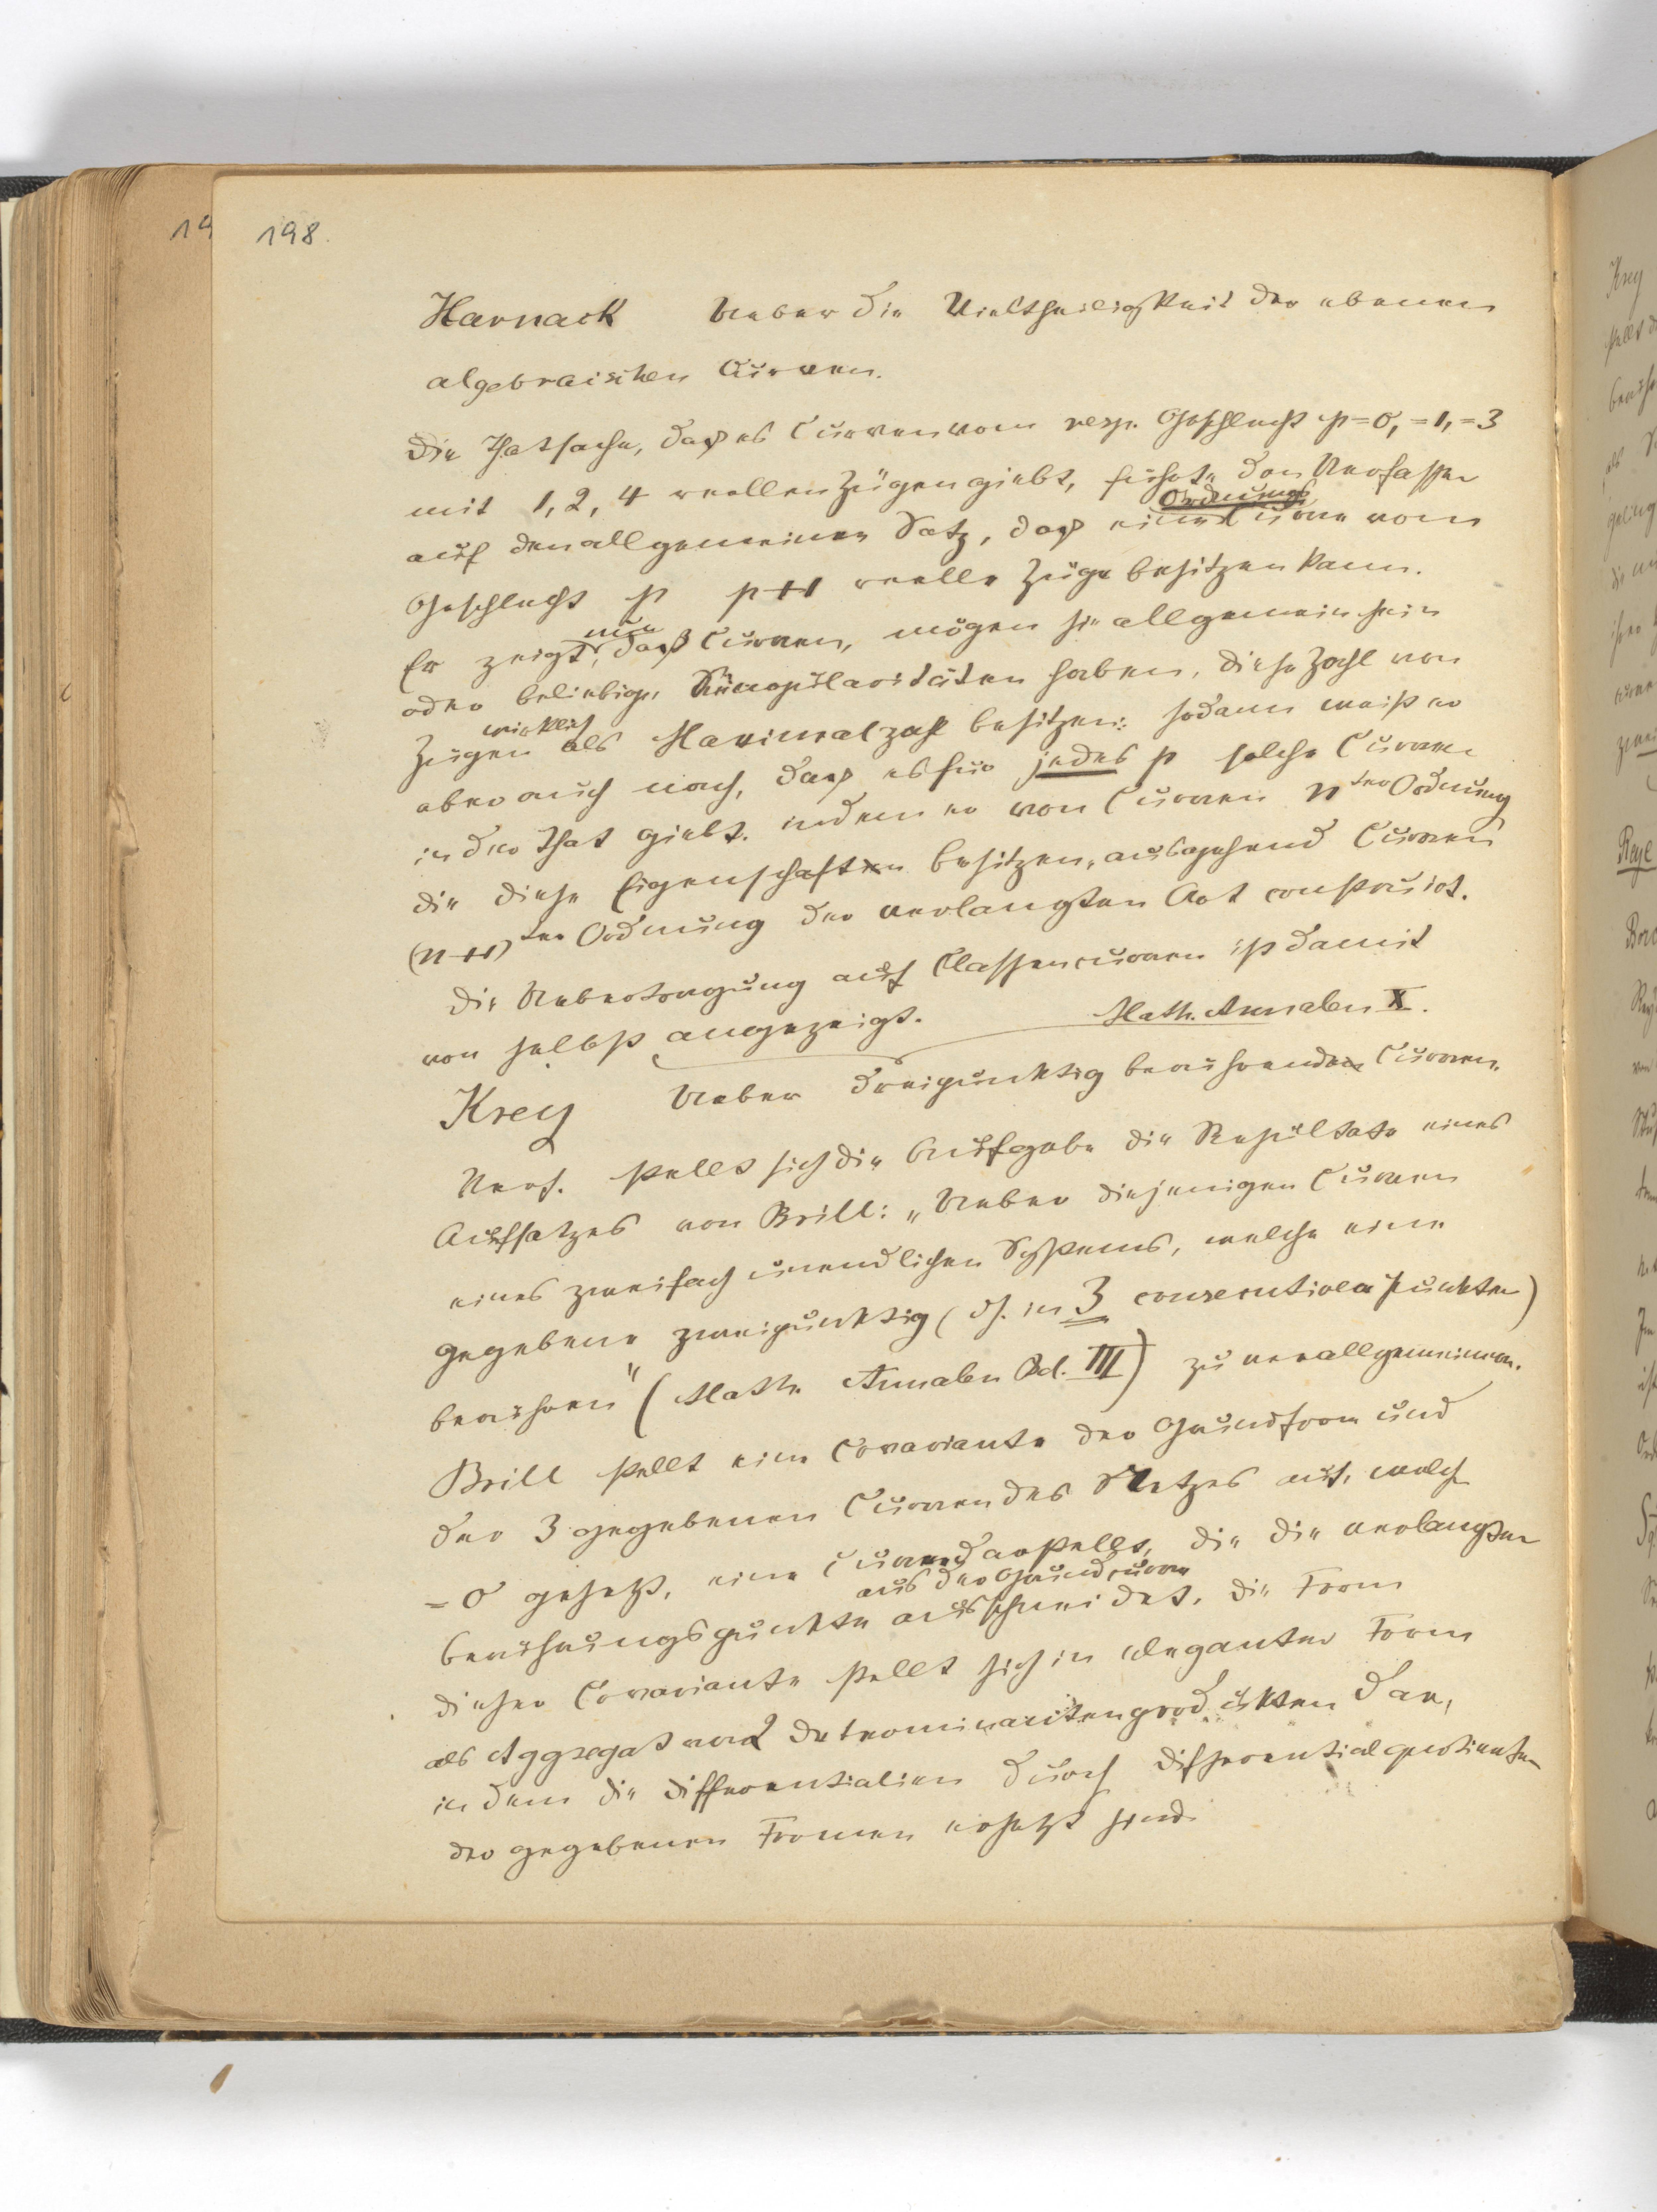 19 198.
Harnack Ueber die Vieltheiligkeit der ebenen
algebraischen Curven.
Die Thatsache, daß es Curven vom resp. Geschlecht p=0, =1, =3
mit 1, 2, 4 reellen Zügen giebt, führte den Verfasser
auf den allgemeinen Satz, daß eine Ordnungscurve vom
Geschlecht p p+1 reelle Züge besitzen kann.
Er zeigt, nun daß Curven, mögen sie allgemein sein
oder beliebige Singularitäten haben, diese Zahl von
Zügen wirklich als Maximalzahl besitzen; sodann weist er
aber auch nach, daß es für jedes p solche Curven
in der That giebt. indem er von Curven n ter Ordnung
die diese Eigenschaften besitzen, ausgehend Curven
(n+1) ter Ordnung der verlangten Art construirt.
Die Uebertragung auf Classencurven ist damit
von selbst angezeigt. Math. Annalen X.
Krey Ueber dreipunktig berührende Curven.
Verf. stellt sich die Aufgabe die Resultate eines
Aufsatzes von Brill: „Ueber diejenigen Curven
eines zweifach unendlichen Systems, welche eine
gegebene zweipunktig (d. in 3 consecutiven Punkten)
berühren" (Math. Annalen Bd. III) zu verallgemeinern.
Brill stellt eine Covariante der Grundform und
der 3 gegebenen Curven des Netzes auf, welche
= 0 gesetzt, eine Curve darstellt, die die verlangten
Berührungspunkte aus der Grundcurve ausschneidet. Die Form
dieser Covariante stellt sich in eleganter Form
als Aggregat von 2 Determinantenprodukten dar,
in dem die Differentialien durch Differentialquotienten
der gegebenen Formen ersetzt sind.